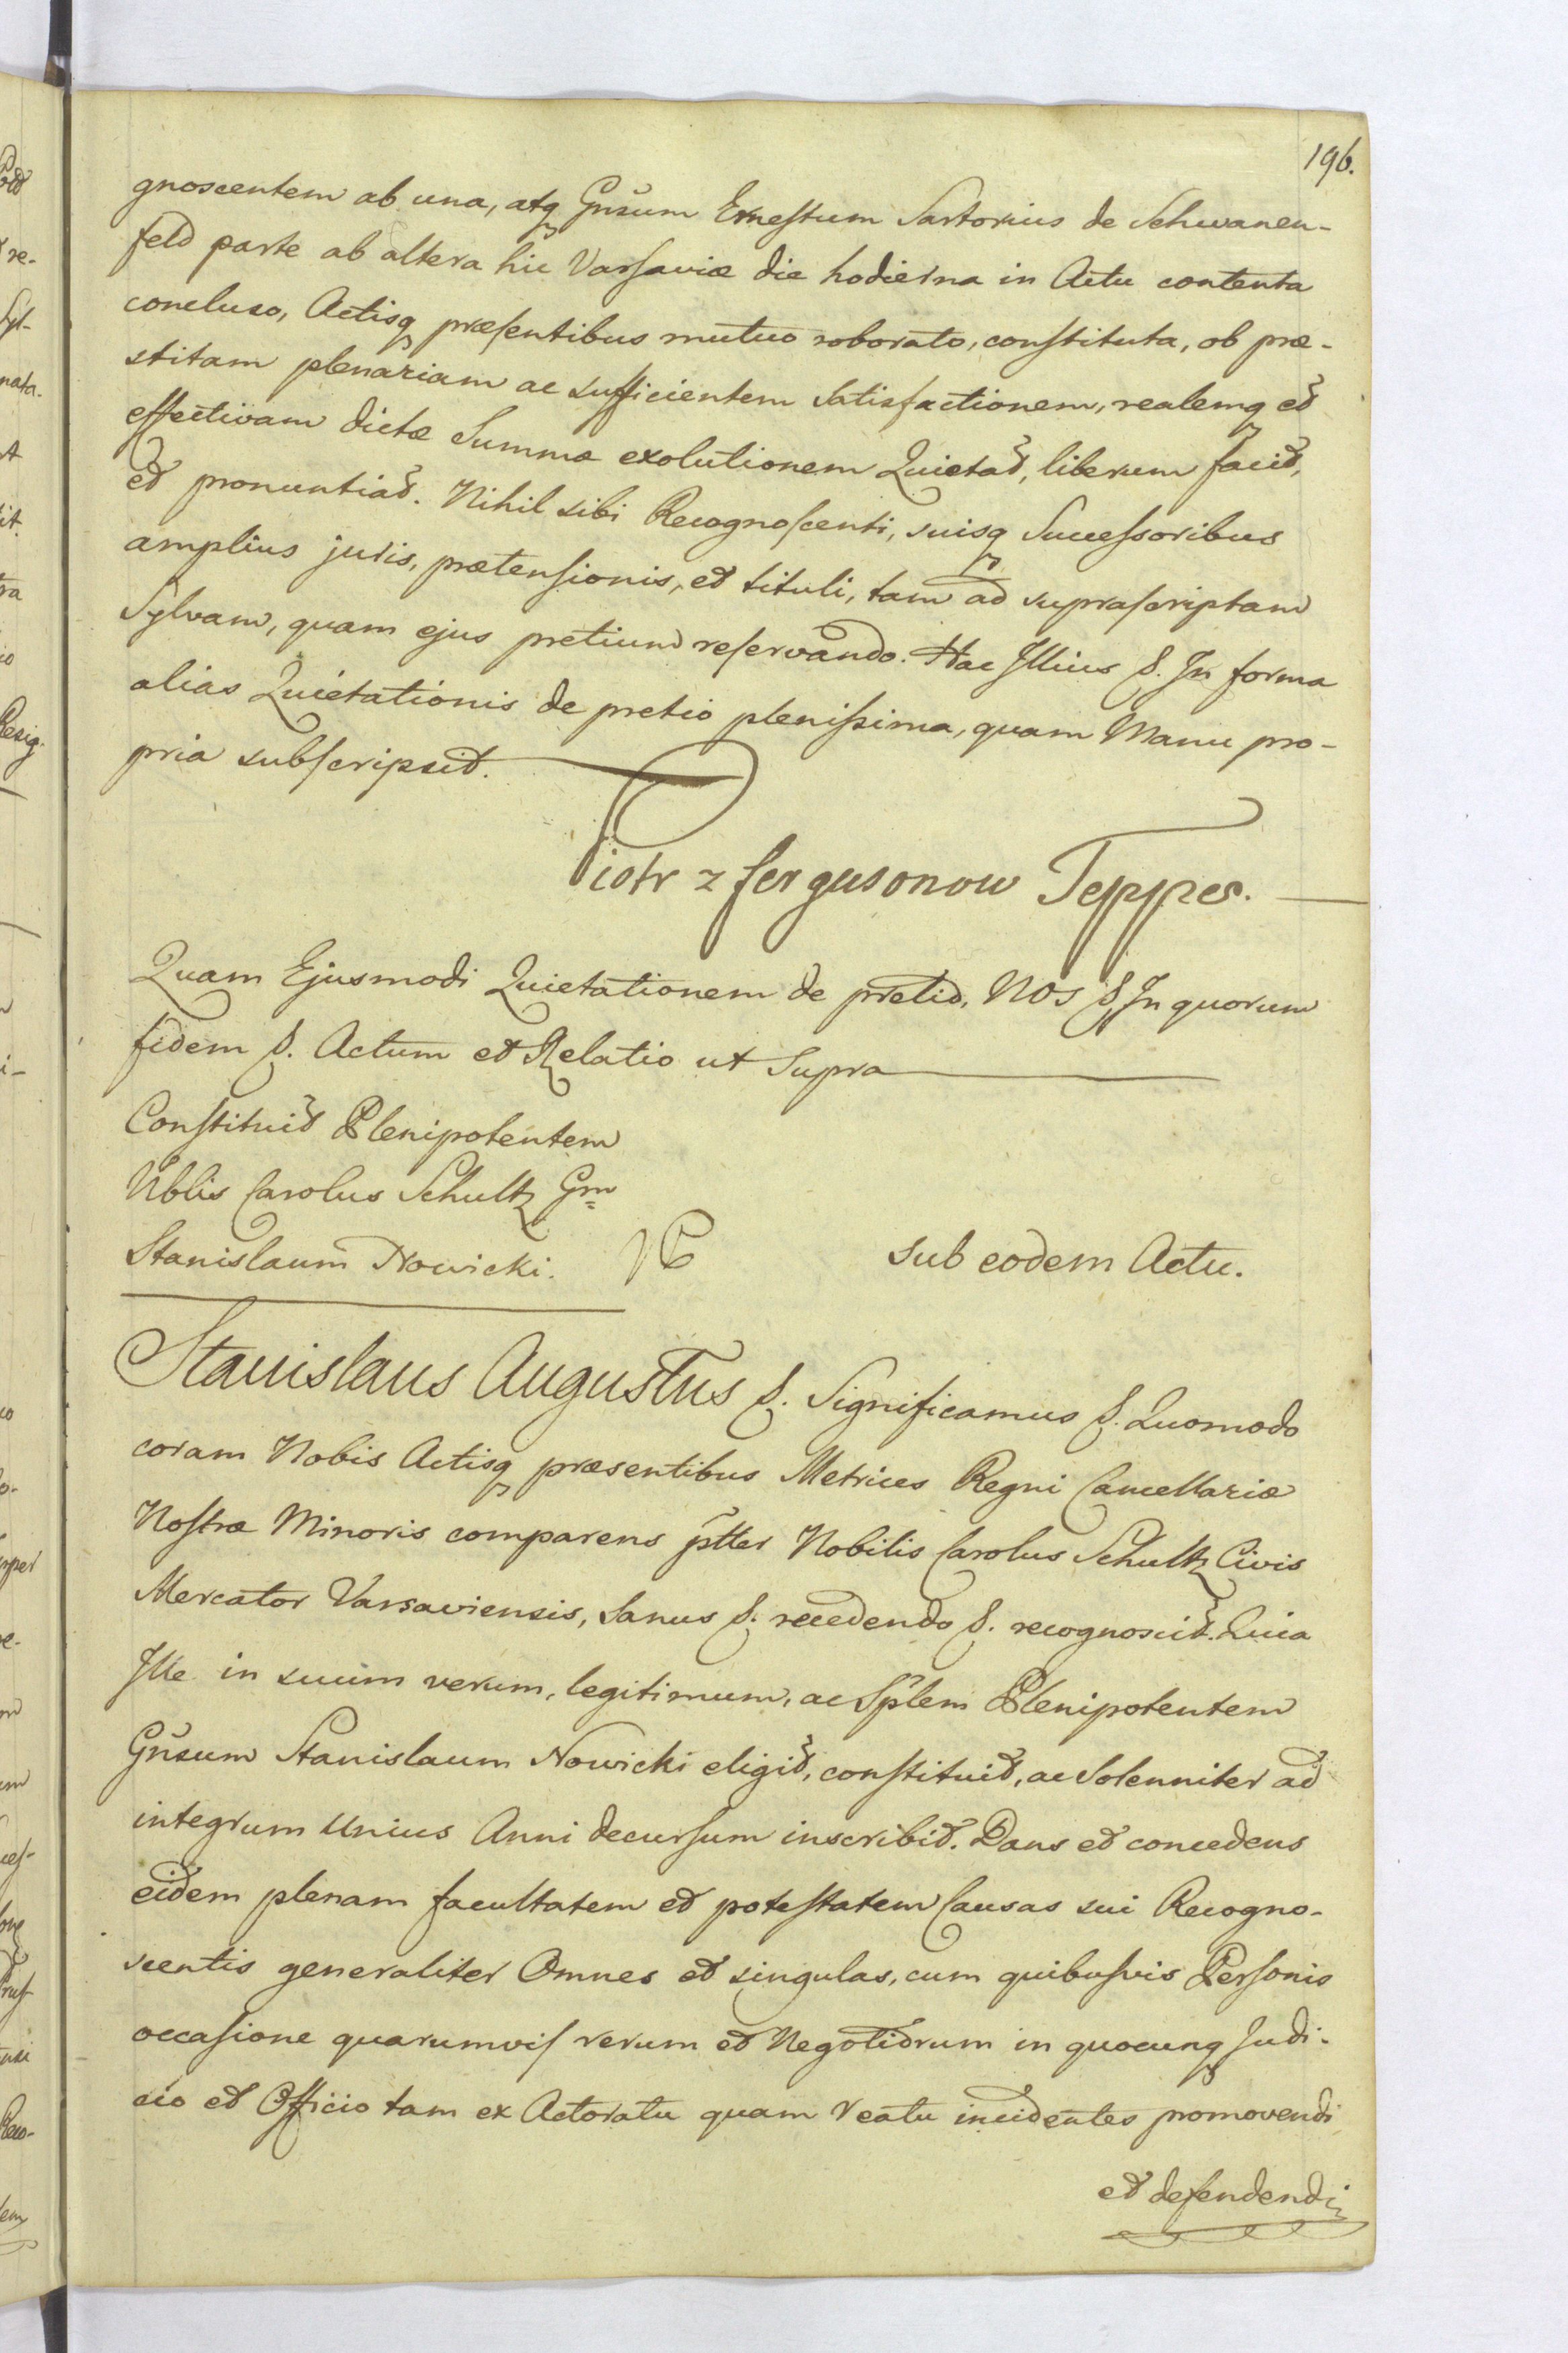 196.
gnoscentem ab una, atq Gnsum Ernestum Sartorius de Schwanen-
feld parte ab altera hic Varsaviæ die hodierna in Actu contenta
concluso, Actisq præsentibus mutuo roborato, constituta, ob præ-
stitam plenariam ac sufficientem Satisfactionem, realemq et
effectivam dictæ Summæ exolutionem Quietat, liberum facit,
et pronuntiat. Nihil sibi Recognoscenti, suisq Successoribus
amplius juris, prætensionis, et tituli, tam ad suprascriptam
Sylvam, quam ejus pretium reservando. Hac Illius &. In forma
alias Quietationis de pretio plenissima, quam Manu pro-
pria subscripsit.
Piotr z fergusonow Tepper.
Quam Ejusmodi Quietationem de pretio, Nos &. In quorum
fidem &. Actum et Relatio ut Supra
Constituit Plenipotentem
Nblis Carolus Schultz Gm
Stanislaum Nowicki.
Sub eodem Actu.
Stanislaus Augustus &. Significamus &. Quomodo
coram Nobis Actisq præsentibus Metrices Regni Cancellariæ
Nostræ Minoris comparens pltter Nobilis Carolus Schultz Civis
Mercator Varsaviensis, Sanus &. recedendo &. recognoscit. Quia
Ille in suum verum, legitimum, ac Splem Plenipotentem
Gnsum Stanislaum Nowicki eligit, constituit, ac Solenniter ad
integrum Unius Anni decursum inscribit. Dans et concedens
eidem plenam facultatem et potestatem Causas sui Recogno-
scentis generaliter Omnes et singulas, cum quibusvis Personis
occasione quarumvis rerum et Negotiorum in quocunq Judi-
cio et Officio tam ex Actoratu quam reatu incidentes promovendi
et defendendi